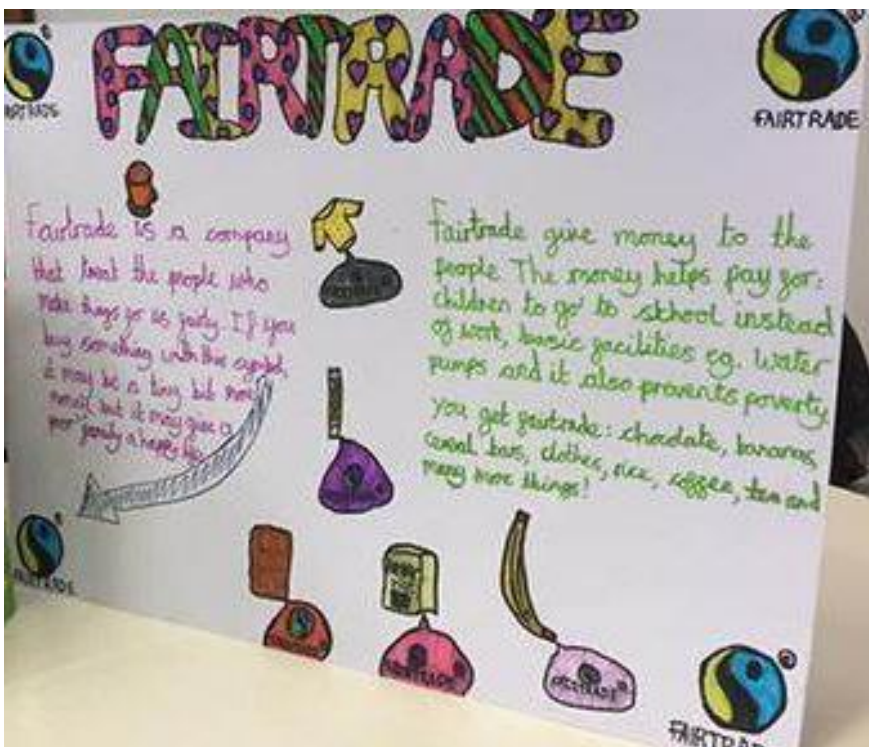 FAIRTRADE
FAIRTRADE
Fairtrade is a company
that treat the people who
make things for us fairly. If you
buy something with this symbol,
it may be a tiny bit more
but it may give a
poor family a happy
Fairtrade give money to the
people. The money helps pay for:
children to go to school instead
of work, basic facilities eg. Water
pumps and it also provents poverty
you get fairtrade: chocolate, bananas,
cereal bars, clothes, rice, coffee, tea and
many more things!
FAIRTRADE
FAIRTRADE
FAIRTRADE